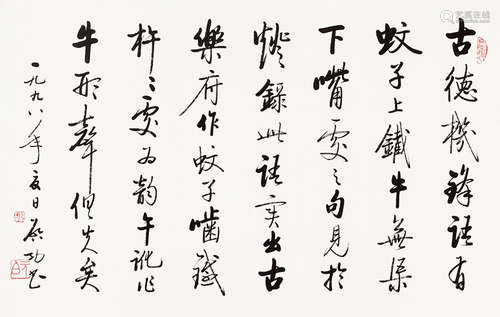 古德機鋒語有
蚊子上鐵牛無渠
下嘴處之句見於
燈錄此語實出古
樂府作蚊子嚙鐵
杵〻處为韵午訛作
牛形聲俱失矣
一九九八年夏日啟功书